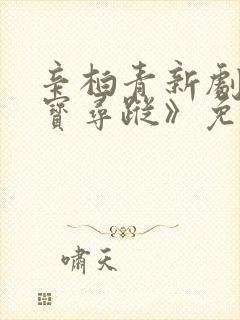 辛柏青新劇
寶尋蹤》免
嘯天